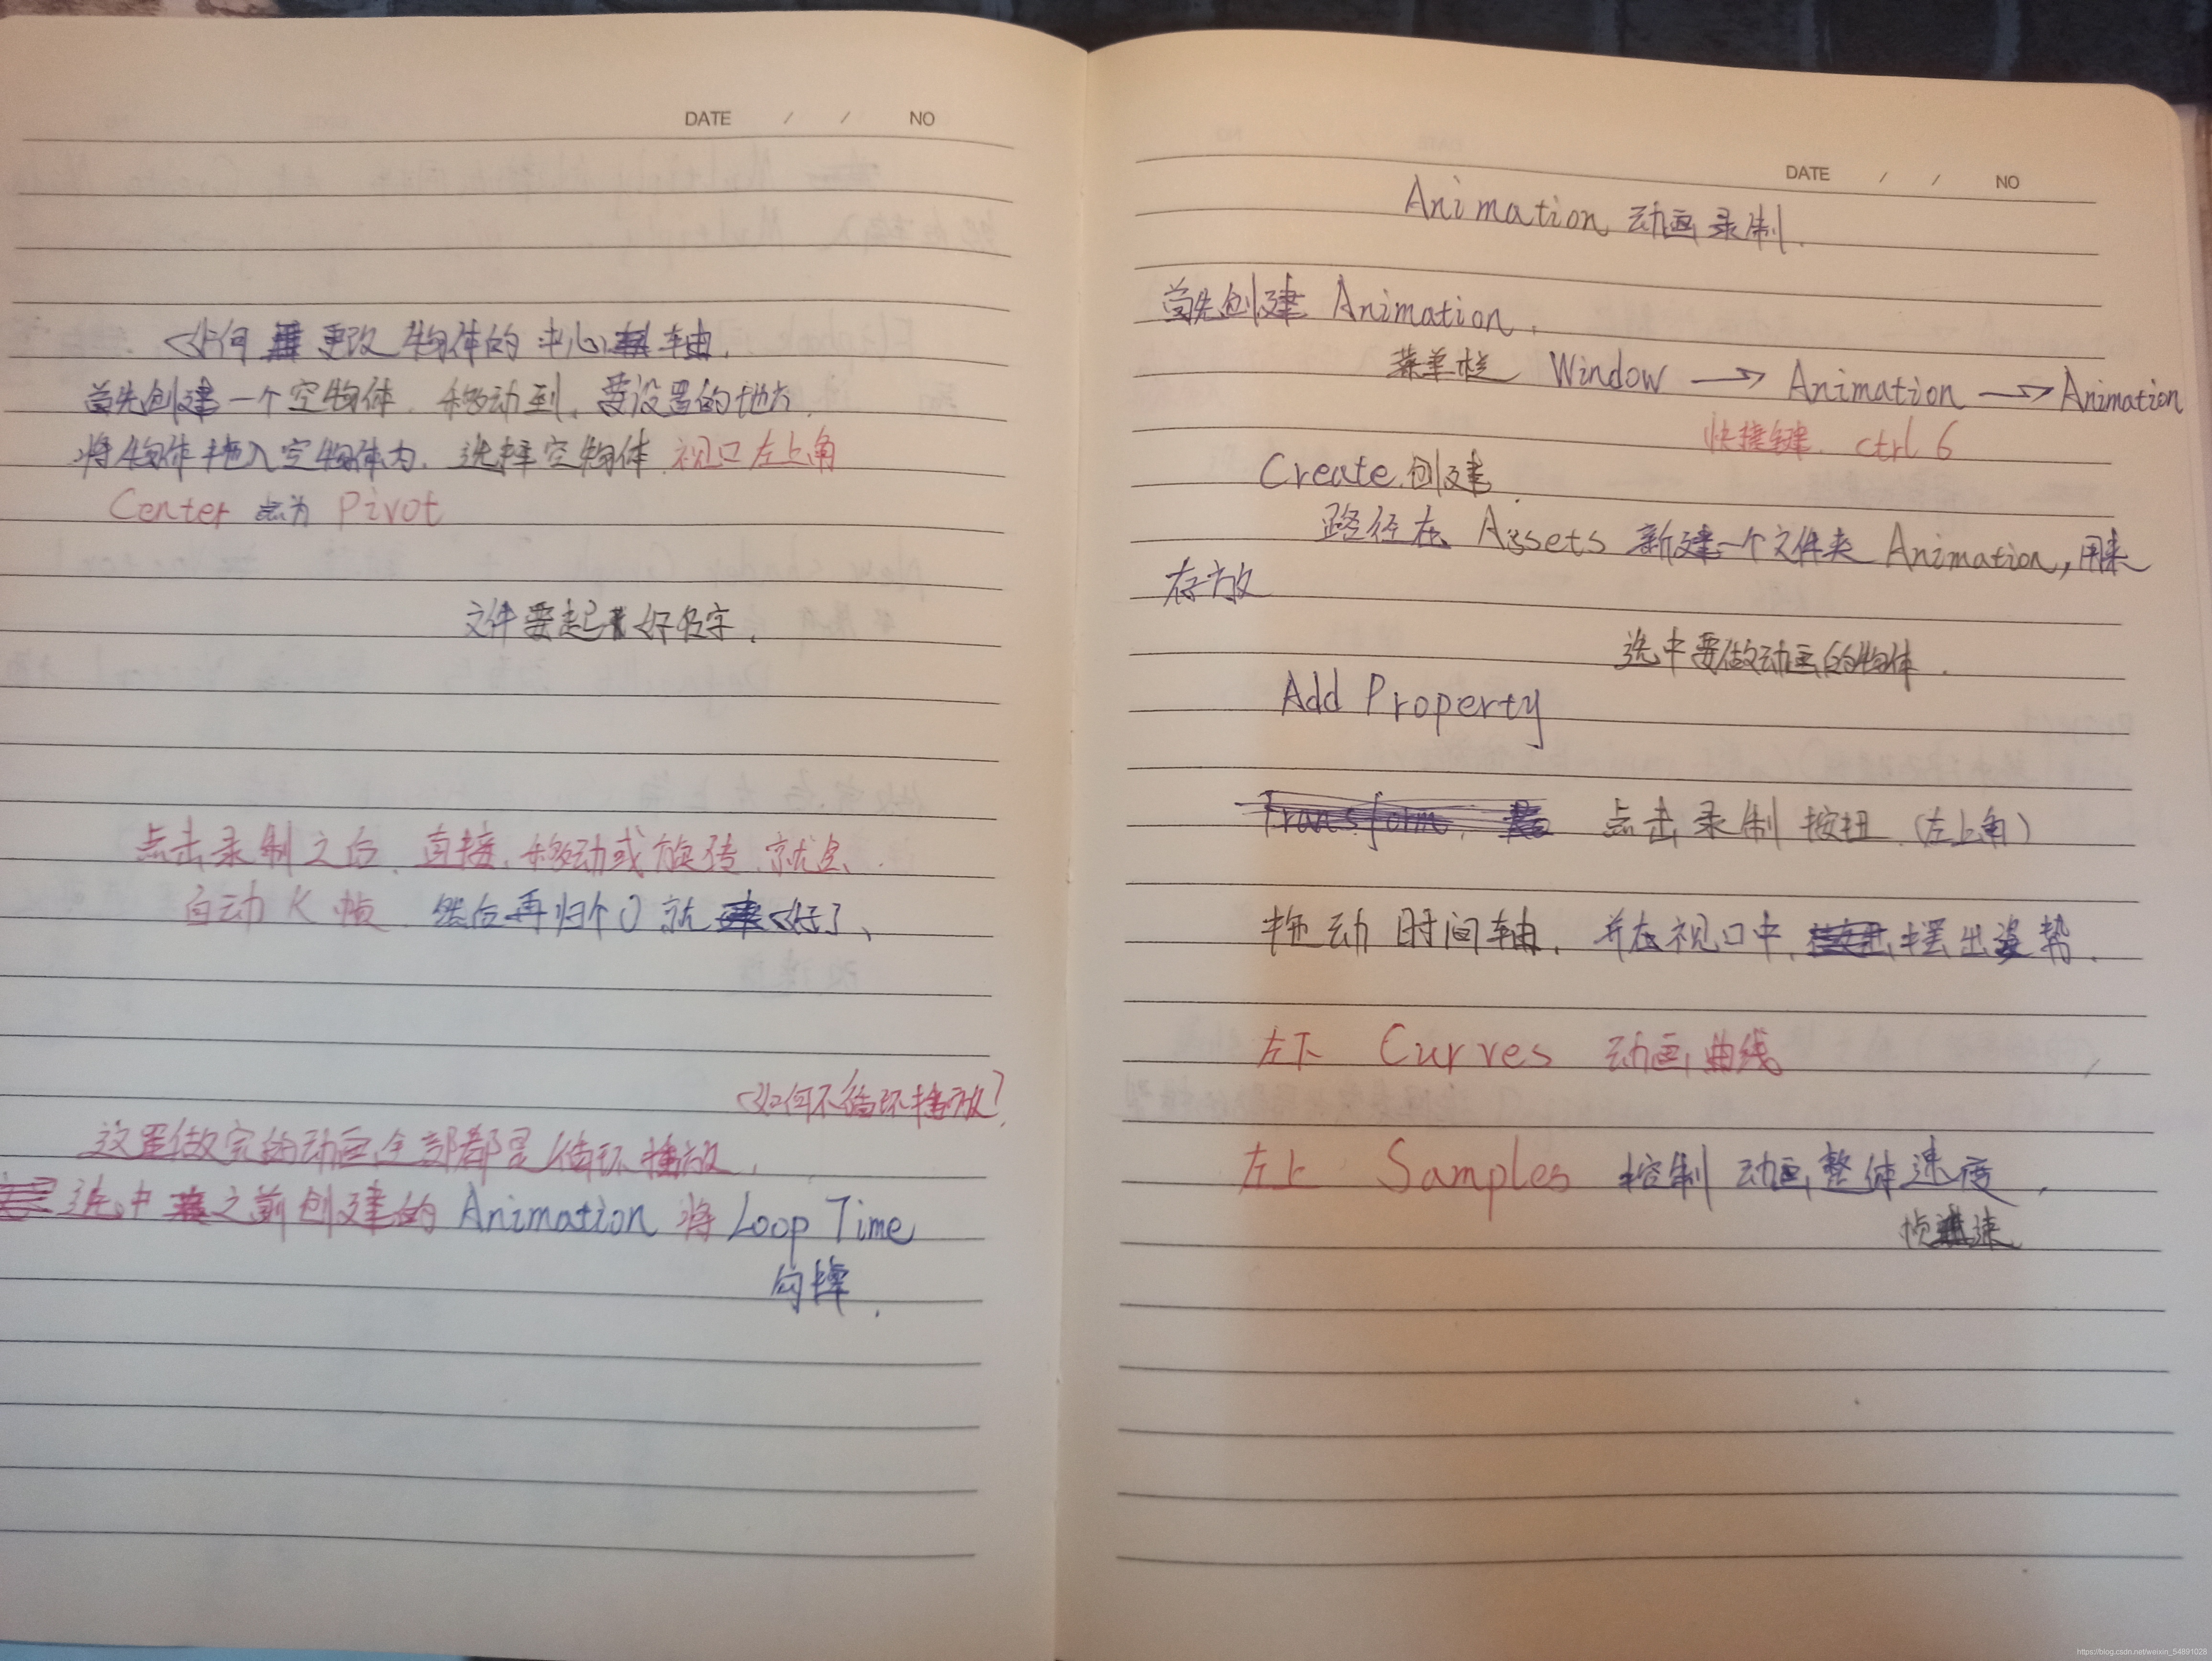 DATE / / NO
如何更改物体的中心轴.
首先创建一个空物体. 移动到, 要设置的地方.
将物体拖入空物体内. 选择空物体. 视口左上角
Center 点为 Pivot
文件要起好名字.
点击录制之后, 直接, 移动或旋转, 就会..
自动K帧. 然后再归个0就好了、
如何不循环播放?
这里做完的动画全部都是循环播放.
选中之前创建的 Animation 将 Loop Time
勾掉.
DATE / / NO
Animation 动画录制.
首先创建 Animation.
菜单栏 Window → Animation → Animation
快捷键. ctrl 6
Create 创建.
路径在 Assets 新建一个文件夹 Animation, 用来
存放
选中要做动画的物体.
Add Property
Transform. 点击录制按钮. (左上角)
拖动时间轴. 并在视口中, 摆出姿势.
左下 Curves 动画曲线
左上 Samples 控制动画整体速度.
帧速
https://blog.csdn.net/weixin_54891028